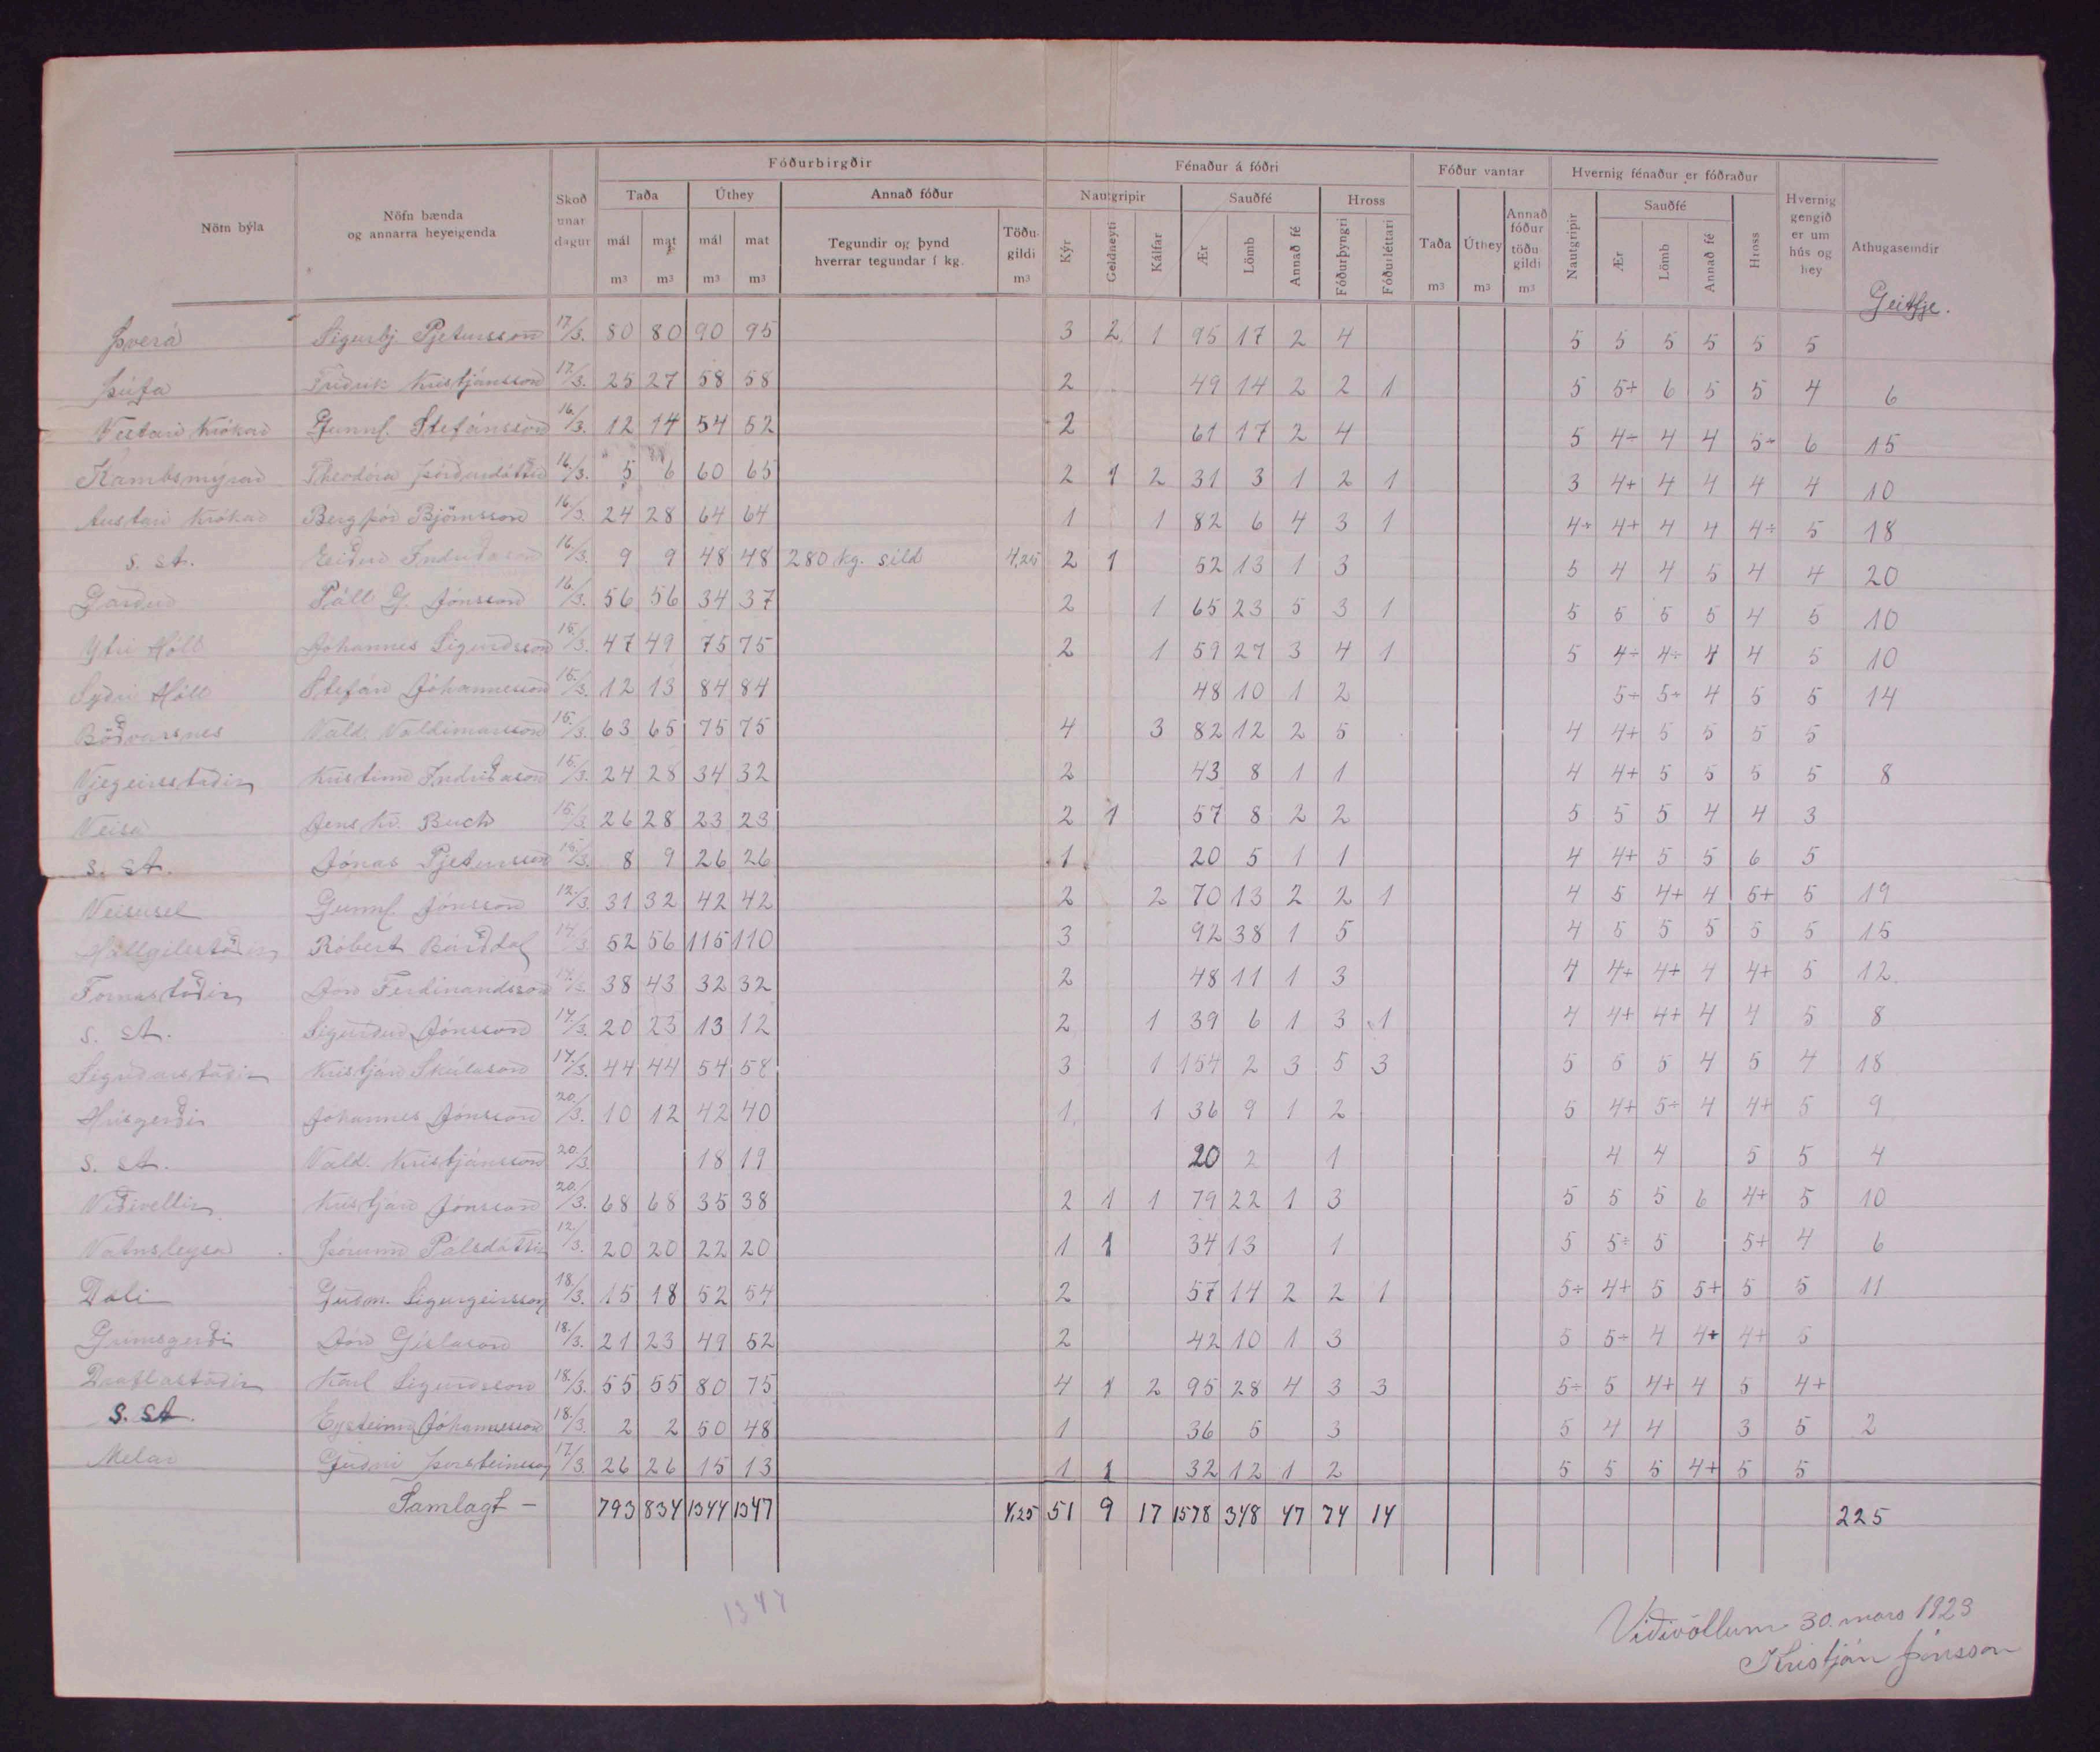 Fóðurbirgðir Fénaður á fóðri Fóður vantar Hvernig fénaður er fóðraður
Nöfn býla Nöfn bænda og annarra heyeigenda Skoðunar dagur Taða Úthey Annað fóður Nautgripir Sauðfé Hross Taða Úthey Annað fóður töðu gildi Nautgripir Sauðfé Hross Hvernig gengið er um hús og hey Athugasemdir
mál mat mál mat Tegundir og þynd hverrar tegundar í kg. Töðu-gildi Kýr Geldneyti Kálfar Ær Lömb Annað fé Fóðurþyngri Fóðurléttari Ær Lömb Annað fé
m³ m³ m³ m³ m³ m³ m³ m³ Geitfje.
Þverá Sigurbj Pjetursson 17/3. 80 80 90 95 3 2 1 95 17 2 4 5 5 5 5 5 5
Þúfa Friðrik Kristjánsson 17/3. 25 27 58 58 2 49 14 2 2 1 5 5+ 6 5 5 4 6
Vestari Krókar Gunnl. Stefánsson 16/3. 12 14 54 52 2 61 17 2 4 5 4÷ 4 4 5÷ 6 15
Kambsmýrar Theodóra Þórðardóttir 16/3. 5 6 60 65 2 1 2 31 3 1 2 1 3 4+ 4 4 4 4 10
Austari Krókar Bergþór Björnsson 16/3. 24 28 64 64 1 1 82 6 4 3 1 4+ 4+ 4 4 4÷ 5 18
s. st. Eiður Indriðason 16/3. 9 9 48 48 280 kg. síld 4,25 2 1 52 13 1 3 5 4 4 5 4 4 20
Garður Páll G. Jónsson 16/3. 56 56 34 37 2 1 65 23 5 3 1 5 5 5 5 4 5 10
Ytri Hóll Jóhannes Sigurðsson 15/3. 47 49 75 75 2 1 59 27 3 4 1 5 4÷ 4÷ 4 4 5 10
Syðri Hóll Stefán Jóhannesson 15/3. 12 13 84 84 48 10 1 2 5÷ 5÷ 4 5 5 14
Böðvarsnes Vald. Valdimarsson 15/3. 63 65 75 75 4 3 82 12 2 5 4 4+ 5 5 5 5
Vjegeirsstaðir Kristinn Indriðason 15/3. 24 28 34 32 2 43 8 1 1 4 4+ 5 5 5 5 8
Veisa Jens Kr. Buch 15/3. 26 28 23 23 2 1 57 8 2 2 5 5 5 4 4 3
s. st. Jónas Pjetursson 15/3. 8 9 26 26 1 20 5 1 1 4 4+ 5 5 6 5
Veisusel Gunnl. Jónsson 12/3. 31 32 42 42 2 2 70 13 2 2 1 4 5 4+ 4 5+ 5 19
Hallgilsstaðir Róbert Bárðdal 14/3 52 56 115 110 3 92 38 1 5 4 5 5 5 5 5 15
Fornastaðir Jón Ferdinandsson 38 43 32 32 2 48 11 1 3 4 4+ 4+ 4 4+ 5 12
s. st. Sigurður Jónsson 14/3. 20 23 13 12 2 1 39 6 1 3 1 4 4+ 4+ 4 4 5 8
Sigríðarstaðir Kristján Skúlason 14/3. 44 44 54 58 3 1 154 2 3 5 3 5 5 5 4 5 4 18
Hrísgerði Jóhannes Jónsson 20/3. 10 12 42 40 1 1 36 9 1 2 5 4+ 5÷ 4 4+ 5 9
s. st. Vald. Kristjánsson 20/3. 18 19 20 2 1 4 4 5 5 4
Víðivellir Kristján Jónsson 20/3. 68 68 35 38 2 1 1 79 22 1 3 5 5 5 6 4+ 5 10
Vatnsleysa Þórunn Pálsdóttir 12/3. 20 20 22 20 1 1 34 13 1 5 5÷ 5 5+ 4 6
Dæli Guðm. Sigurgeirsson 18/3. 15 18 52 54 2 57 14 2 2 1 5÷ 4+ 5 5+ 5 5 11
Grímsgerði Jón Gíslason 18/3. 21 23 49 52 2 42 10 1 3 5 5÷ 4 4+ 4+ 5
Draflastaðir Karl Sigurðsson 18/3. 55 55 80 75 4 1 2 95 28 4 3 3 5÷ 5 4+ 4 5 4+
s. st. Eysteinn Jóhannesson 18/3. 2 2 50 48 1 36 5 3 5 4 4 3 5 2
Melar Guðni Þorsteinsson 17/3. 26 26 15 13 1 1 32 12 1 2 5 5 5 4+ 5 5
Samlagt – 793 834 1344 1347 4,25 51 9 17 1578 348 47 74 14 225
1347
Víðivöllum 30. mars 1923
Kristján Jónsson